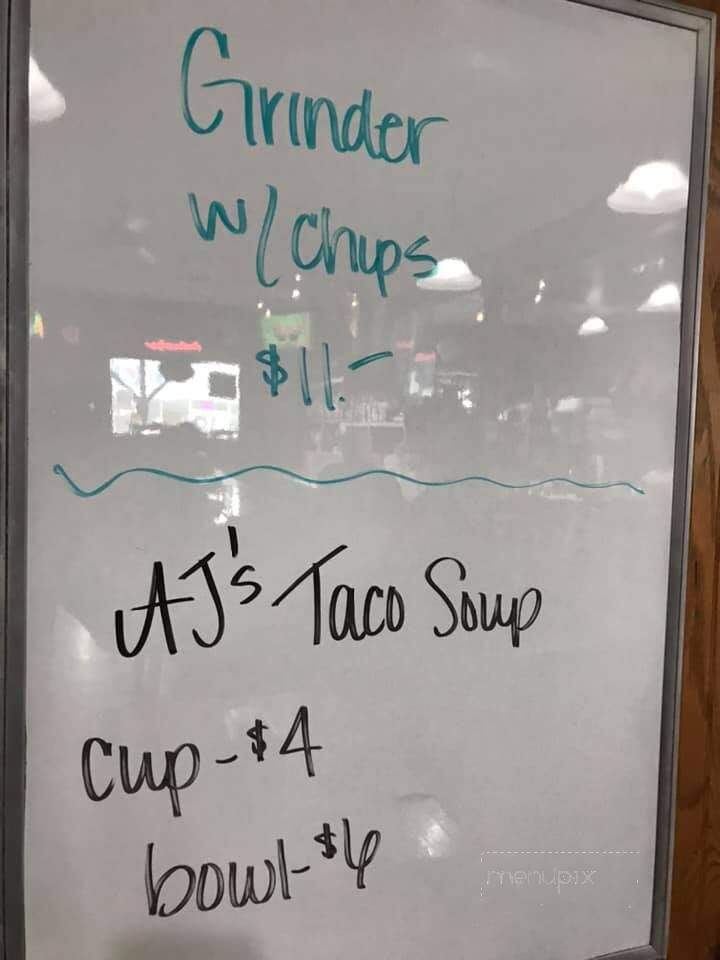 Grinder
w/ chips
$11.-
AJ's Taco Soup
cup-$4
bowl-$6
menupix